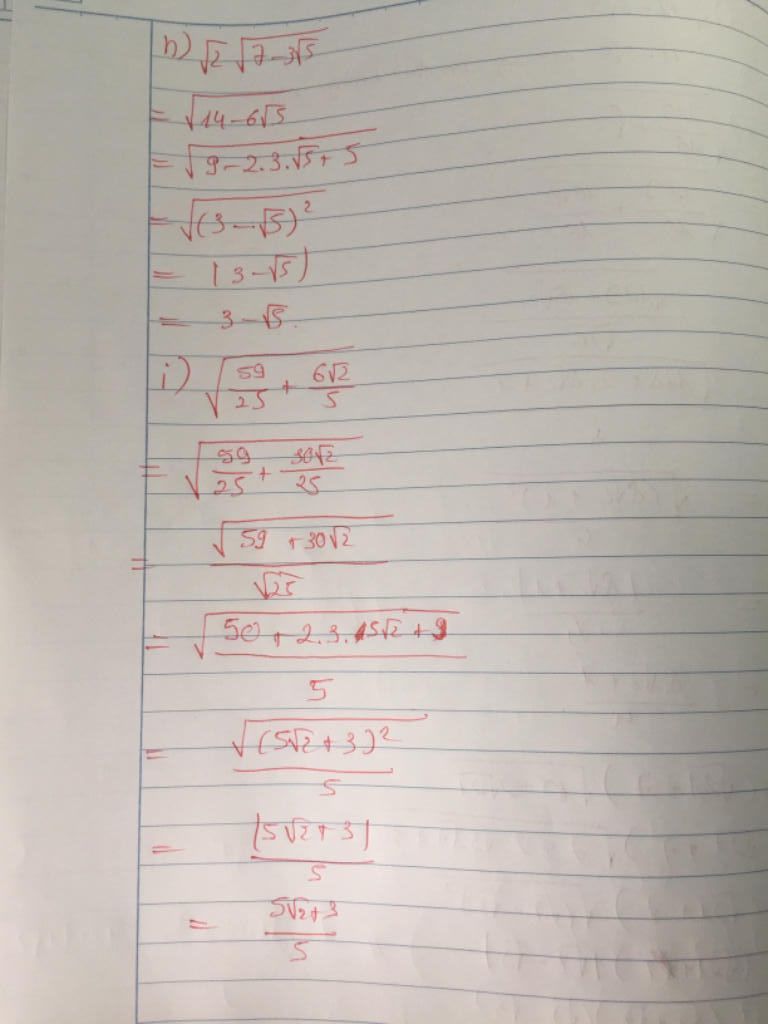 h) √2 √(7-3√5)
= √(14-6√5)
= √(9-2.3.√5+5)
= √((3-√5)²)
= |3-√5|
= 3-√5.
i) √(59/25 + 6√2/5)
= √(59/25 + 30√2/25)
= √(59+30√2)/√25
= √(50+2.3.5√2+9)/5
= √((5√2+3)²)/5
= |5√2+3|/5
= (5√2+3)/5